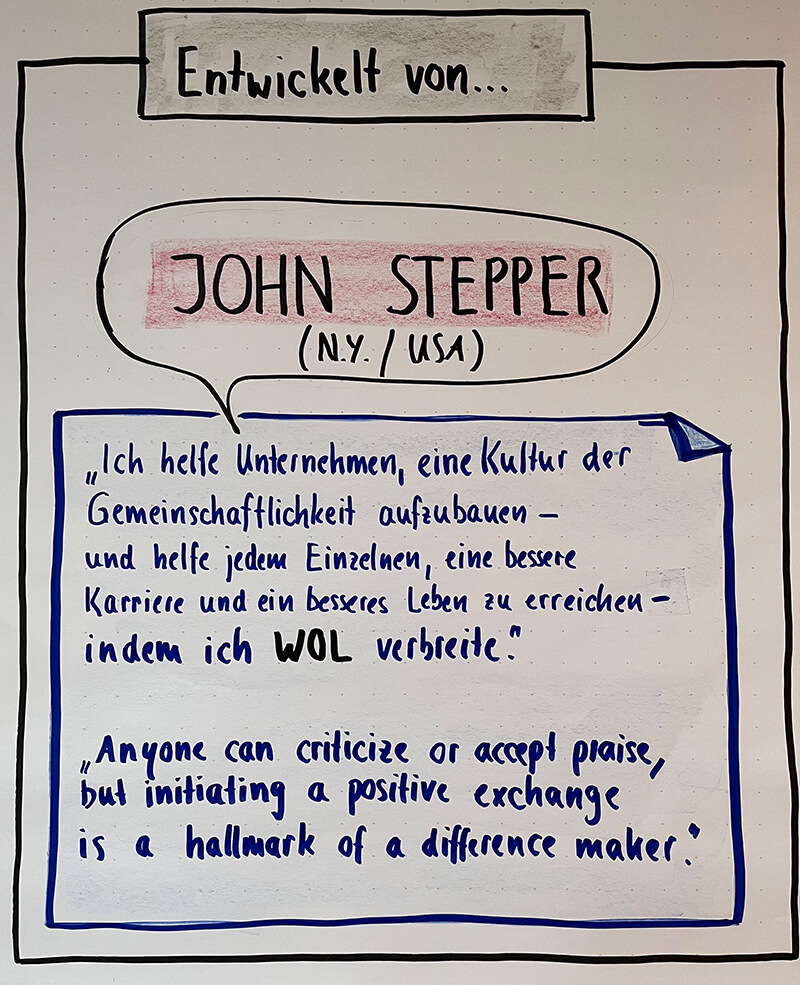 Entwickelt von...
JOHN STEPPER
(N.Y. / USA)
„Ich helfe Unternehmen, eine Kultur der
Gemeinschaftlichkeit aufzubauen –
und helfe jedem Einzelnen, eine bessere
Karriere und ein besseres Leben zu erreichen –
indem ich WOL verbreite."
„Anyone can criticize or accept praise,
but initiating a positive exchange
is a hallmark of a difference maker."